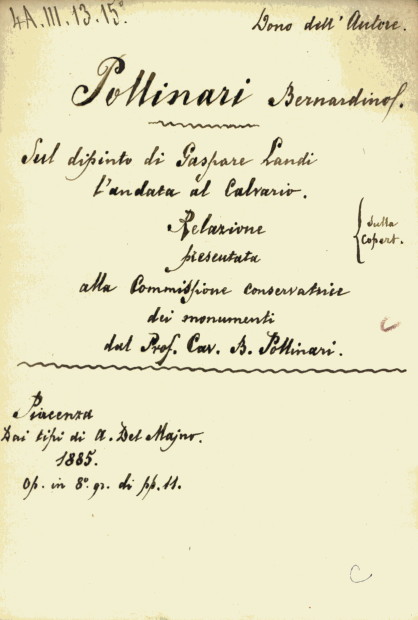 4A.III.13.15°.
Dono dell' Autore.
Pollinari Bernardino.
Sul dipinto di Gaspare Landi
l'andata al Calvario.
Relazione
presentata
sulla
Copert.
alla Commissione conservatrice
dei monumenti
dal Prof. Cav. B. Pollinari.
Piacenza
Dai tipi di A. Del Majno.
1885.
Op. in 8°. gr. di pp. 11.
C